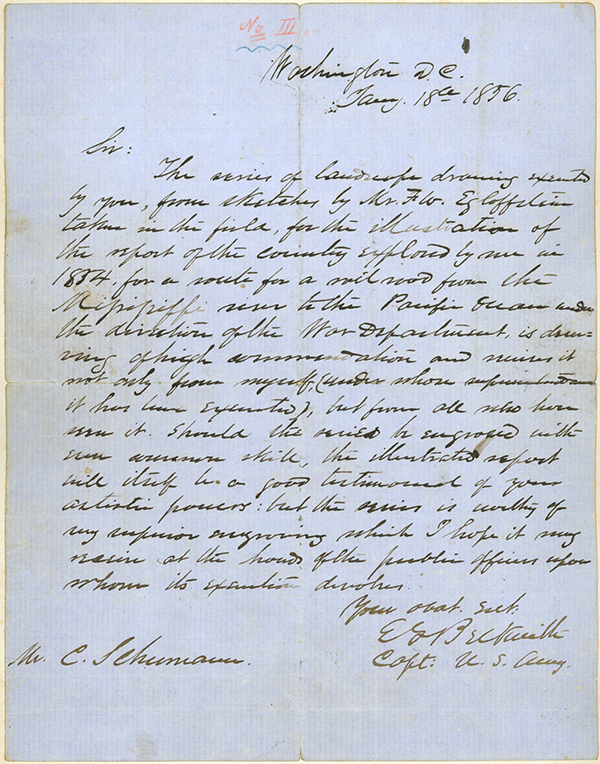 No III.
Washington D.C.
Jany. 18th 1856.
Sir:
The series of landscape drawing executed
by you, from sketches by Mr. F.W. Egloffstein
taken in the field, for the illustration of
the report of the country explored by me in
1854, for a route for a rail road from the
Mississippi river to the Pacific Ocean under
the direction of the War Department, is deser-
ving of high commendation and receives it
not only from myself, (under whose
it has been executed), but from all who have
seen it. Should the series be engraved with
even common skill, the illustrated report
will itself be a good testimonial of your
artistic powers: but the series is worthy of
superior engraving which I hope it may
receive at the hands of the public officers upon
whom its execution devolves.
Your obdt. Svt.
E G Beckwith
Capt. U. S. Army.
Mr. C. Schumann.